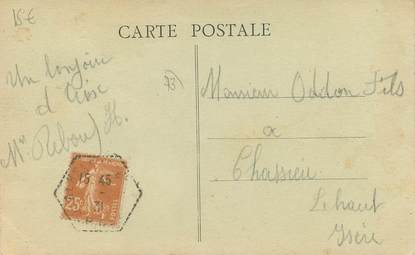 15€
CARTE POSTALE
Un bonjour
d'
Mr Reboul H.
73
Monsieur Oddon Fils
a
Chassieu
Le haut
Isère
15 45
31
25c